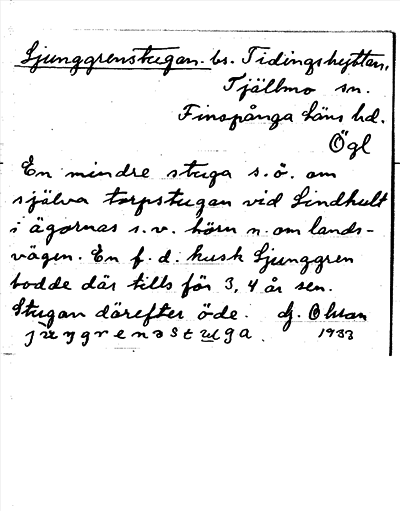 Ljunggrenstugan. bs. Tidingshyttan,
Tjällmo sn.
Finspånga läns hd.
Ögl
En mindre stuga s.ö. om
själva torpstugan vid Lindhult
i ägornas s.v. hörn n. om lands-
vägen. En f. d. kusk Ljunggren
bodde där tills för 3, 4 år sen.
Stugan därefter öde. Hj. Olsson
1933